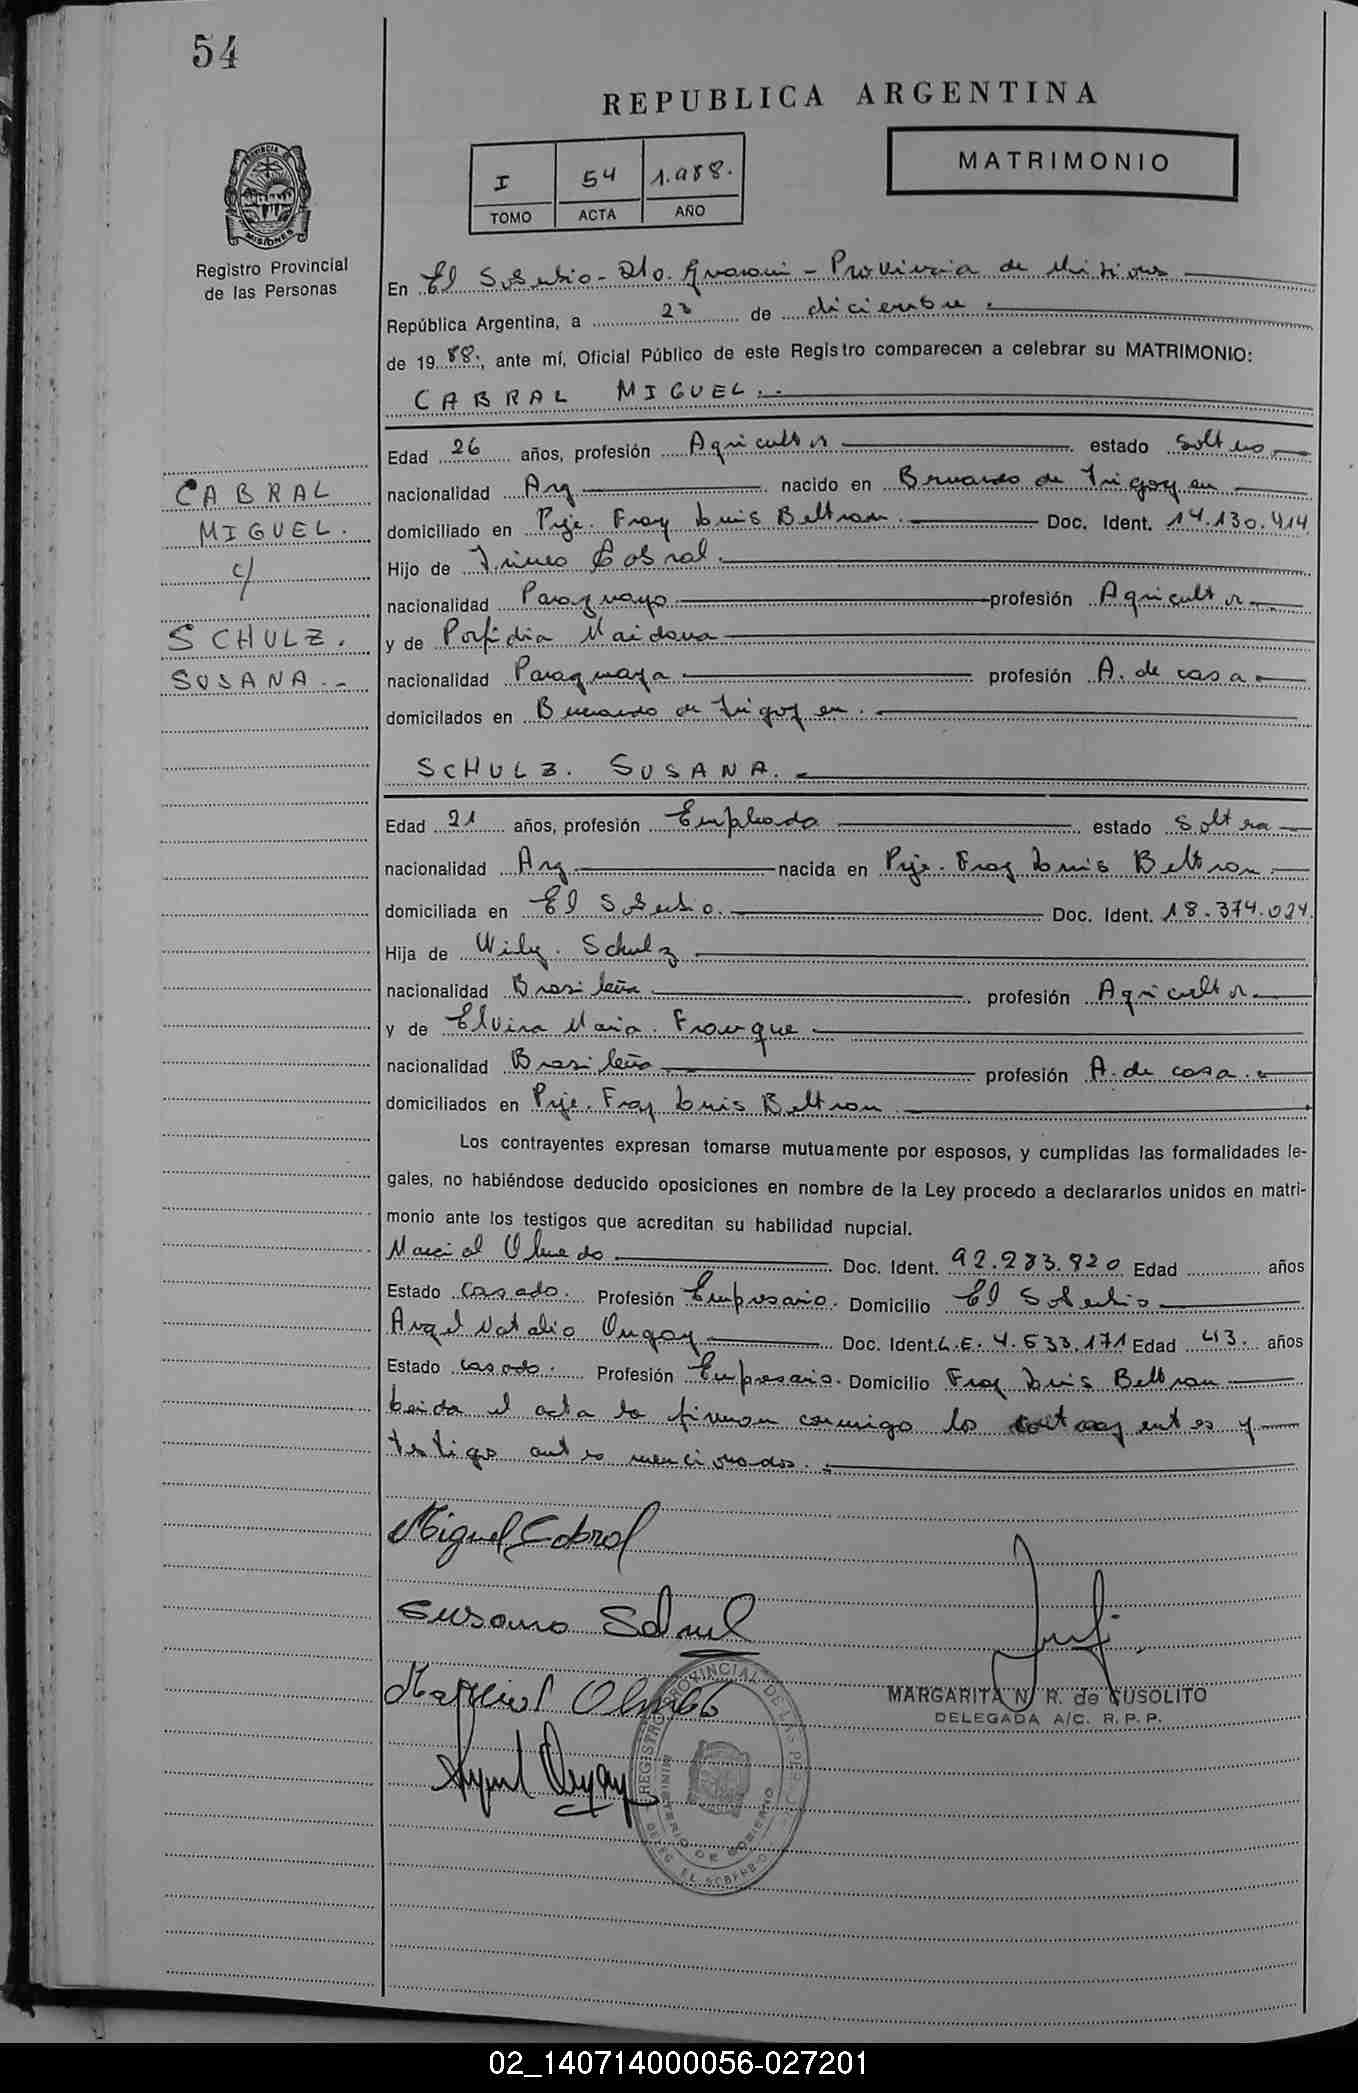 54
REPUBLICA ARGENTINA
MATRIMONIO
I 54 1.988.
TOMO ACTA AÑO
PROVINCIA DE MISIONES
Registro Provincial
de las Personas
En El Soberbio - Dto. Guarani - Provincia de Misiones
República Argentina, a 23 de diciembre
de 19 88, ante mí, Oficial Público de este Registro comparecen a celebrar su MATRIMONIO:
CABRAL MIGUEL.
Edad 26 años, profesión Agricultor estado Soltero
nacionalidad Arg nacido en Bernardo de Irigoyen
domiciliado en Pje. Fray Luis Beltran. Doc. Ident. 14.130.414
Hijo de Irineo Cabral.
nacionalidad Paraguayo profesión Agricultor
y de Porfidia Maidana
nacionalidad Paraguaya profesión A. de casa
domicilados en Bernardo de Irigoyen.
CABRAL
MIGUEL.
c/
SCHULZ.
SUSANA.-
SCHULZ. SUSANA.
Edad 21 años, profesión Empleada estado Soltera
nacionalidad Arg nacida en Pje. Fray Luis Beltran
domiciliada en El Soberbio. Doc. Ident. 18.374.024
Hija de Wily. Schulz
nacionalidad Brasileña profesión Agricultor
y de Elvira Maria. Franque
nacionalidad Brasileña profesión A. de casa.
domiciliados en Pje. Fray Luis Beltran
Los contrayentes expresan tomarse mutuamente por esposos, y cumplidas las formalidades le-
gales, no habiéndose deducido oposiciones en nombre de la Ley procedo a declararlos unidos en matri-
monio ante los testigos que acreditan su habilidad nupcial.
Marcial Olmedo Doc. Ident. 92.283.820 Edad años
Estado casado. Profesión Empresario. Domicilio El Soberbio
Angel Natalio Ungay Doc. Ident. L.E. 4.533.171 Edad 43. años
Estado casado. Profesión Empresario. Domicilio Fray Luis Beltran
Leida el acta la firman conmigo los contrayentes y
testigo antes mencionados.
Miguel Cabral
Susana Schul
MARGARITA N. R. de CUSOLITO
DELEGADA A/C. R. P. P.
REGISTRO PROVINCIAL DE LAS PERSONAS
MINISTERIO DE GOBIERNO
DELEG. EL SOBERBIO
02_140714000056-027201